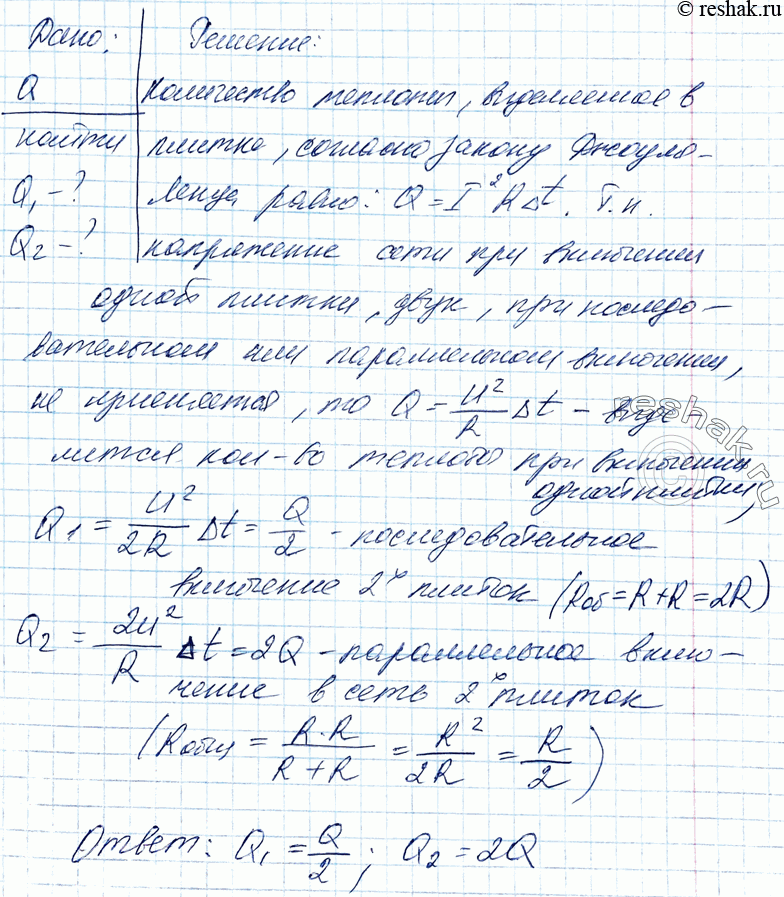 © reshak.ru
Дано: Решение:
Q Количество теплоты, выделяемое в
найти плитке, согласно закону Джоуля-
Q₁-? Ленца равно: Q = I²RΔt. Т.к.
Q₂-? напряжение сети при включении
одной плитки, двух, при последо-
вательном или параллельном включении,
не изменяется, то Q = U²/R Δt - выде
лится кол-во теплоты при включении
одной плитки;
Q₁ = U²/2R Δt = Q/2 - последовательное
включение 2х плиток (Rоб = R + R = 2R)
Q₂ = 2U²/R Δt = 2Q - параллельное вклю-
чение в сеть 2х плиток
(Rобщ = R·R/R+R = R²/2R = R/2)
Ответ: Q₁ = Q/2; Q₂ = 2Q
reshak.ru